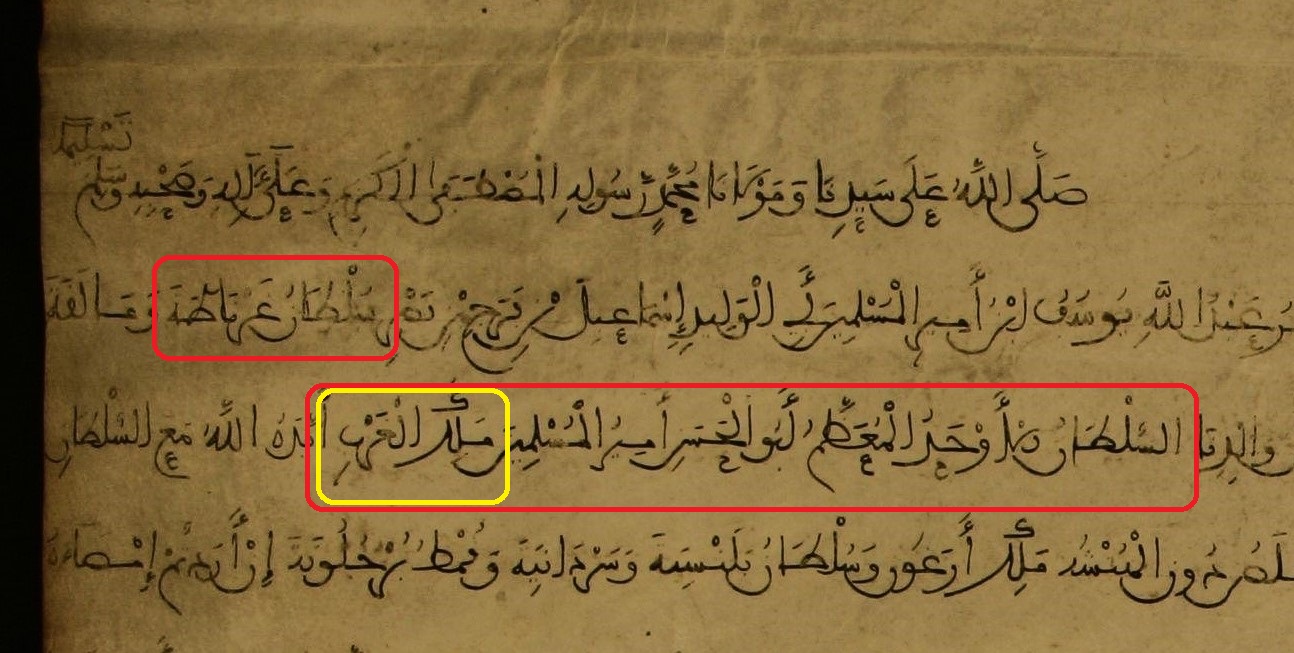 تسليما
صلى الله على سيدنا ومولانا محمد رسوله المصطفى الاكرم وعلى آله وصحبه وسلم
عبد الله يوسف ابن أمير المسلمين أبي الوليد إسماعيل بن فرج بن نصر سلطان غرناطة ومالقة
والدنا السلطان الأوحد المعظم أبو الحسن أمير المسلمين ملك الغرب أيده الله مع السلطان
ملك أرغون وسلطان بلنسية وسردانية وقمط برجلونة إن أردتم إمضاء